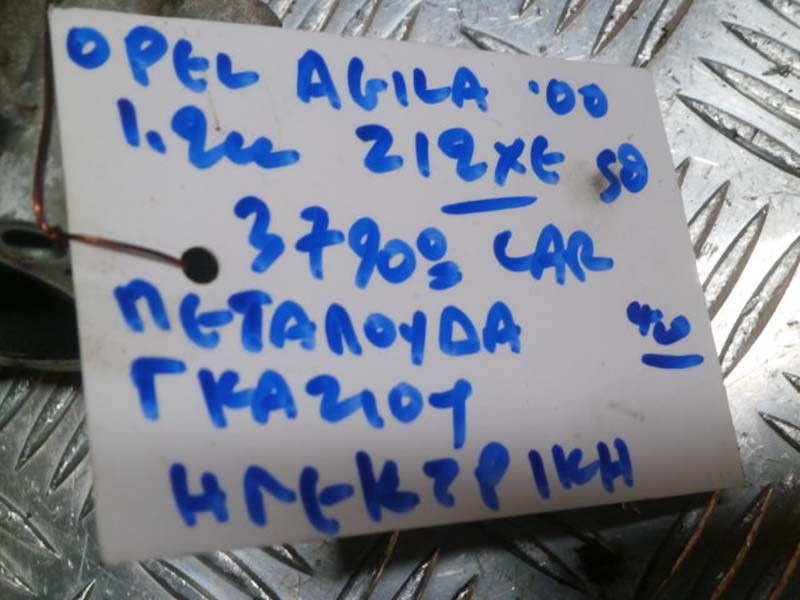 OPEL AGILA '00
1.2cc Z12XE 50
3790º CAR
ΠΕΤΑΛΟΥΔΑ
ΓΚΑΖΙΟΥ
ΗΛΕΚΤΡΙΚΗ